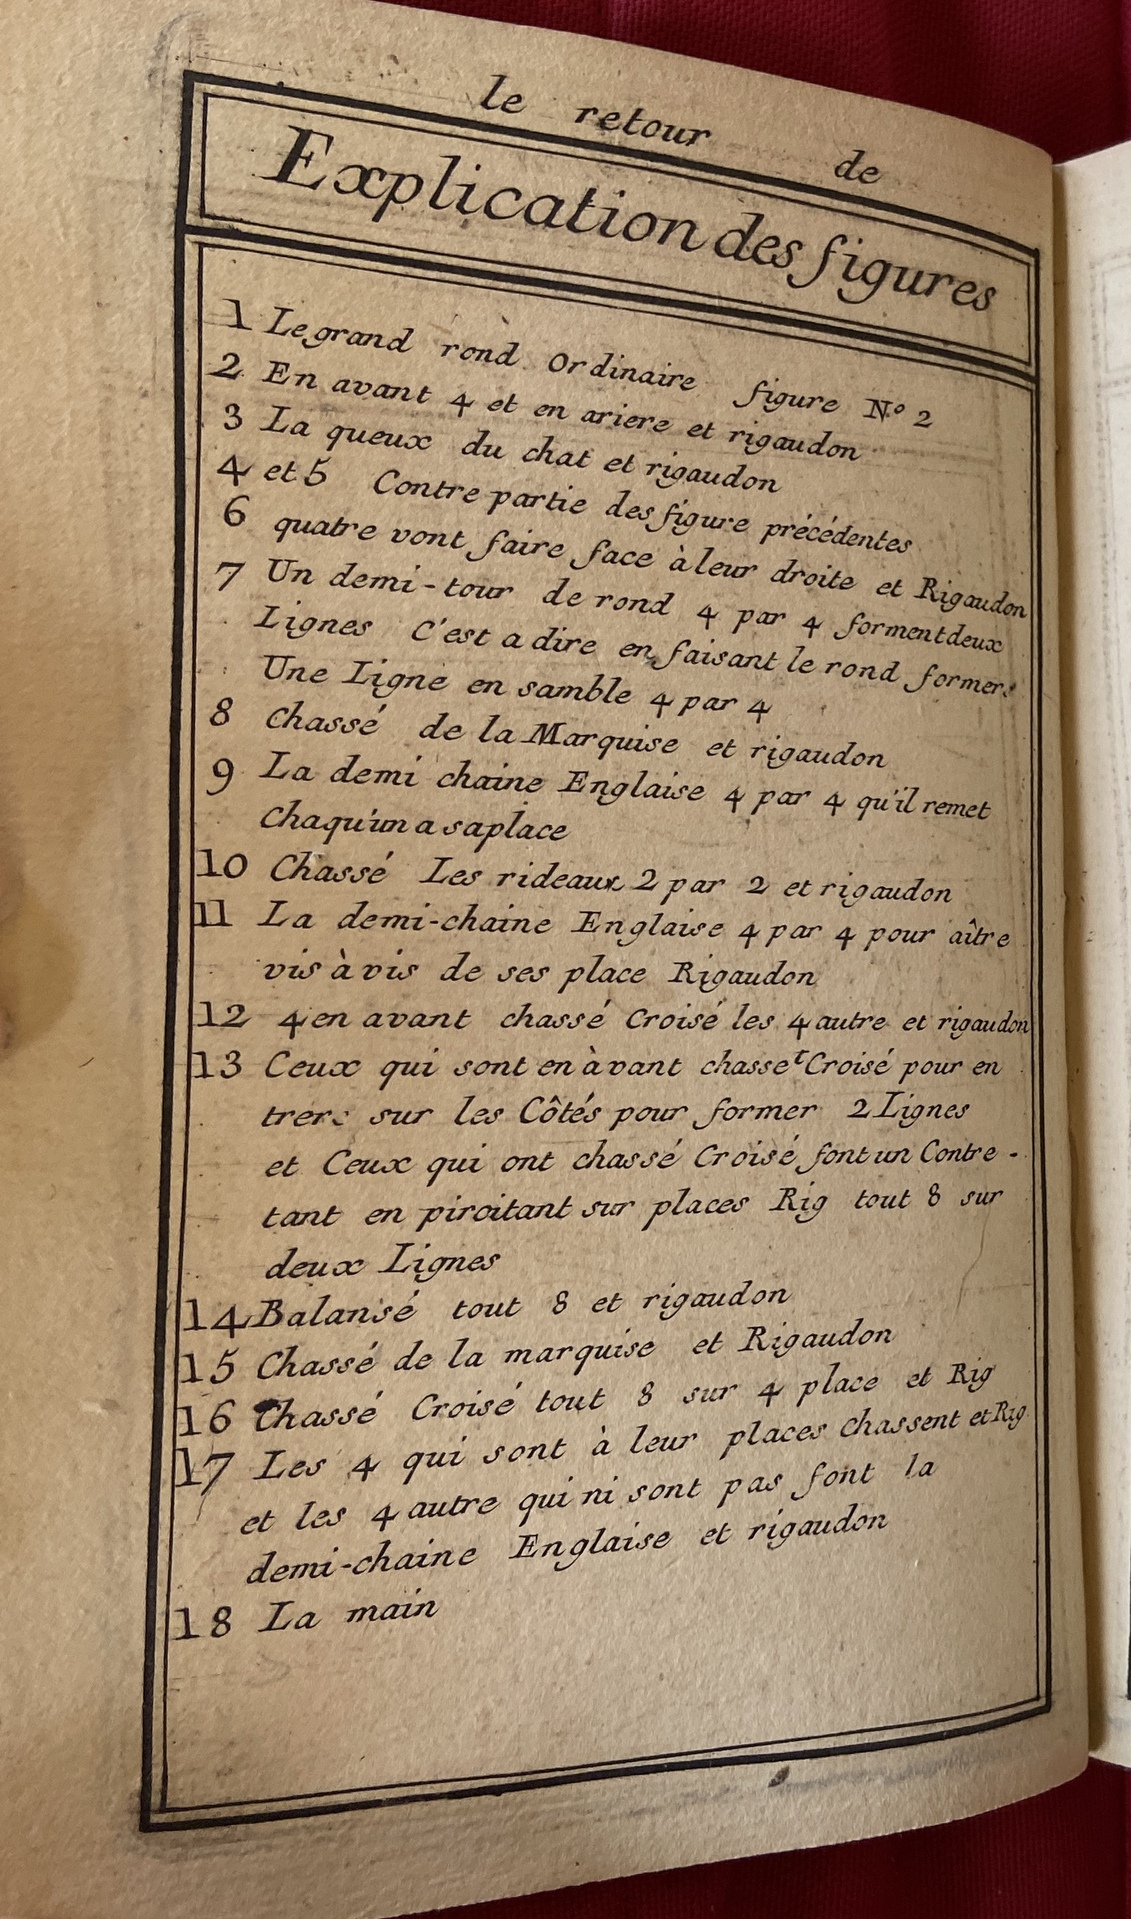 le retour de
Explication des figures
1 Le grand rond Ordinaire figure N° 2
2 En avant 4 et en ariere et rigaudon
3 La queux du chat et rigaudon
4 et 5 Contre partie des figure précédentes
6 quatre vont faire face à leur droite et Rigaudon
7 Un demi-tour de rond 4 par 4 forment deux
Lignes C'est a dire en faisant le rond former
Une Ligne en samble 4 par 4
8 chassé de la Marquise et rigaudon
9 La demi chaine Englaise 4 par 4 qu'il remet
Chaqu'un a sa place
10 Chassé Les rideaux 2 par 2 et rigaudon
11 La demi-chaine Englaise 4 par 4 pour aître
vis à vis de ses place Rigaudon
12 4 en avant chassé Croisé les 4 autre et rigaudon
13 Ceux qui sont en àvant chasse^t Croisé pour en
trer sur les Côtés pour former 2 Lignes
et Ceux qui ont chassé Croisé font un Contre-
tant en piroitant sur places Rig tout 8 sur
deux Lignes
14 Balansé tout 8 et rigaudon
15 Chassé de la marquise et Rigaudon
16 Chassé Croisé tout 8 sur 4 place et Rig
17 Les 4 qui sont à leur places chassent et Rig
et les 4 autre qui ni sont pas font la
demi-chaine Englaise et rigaudon
18 La main